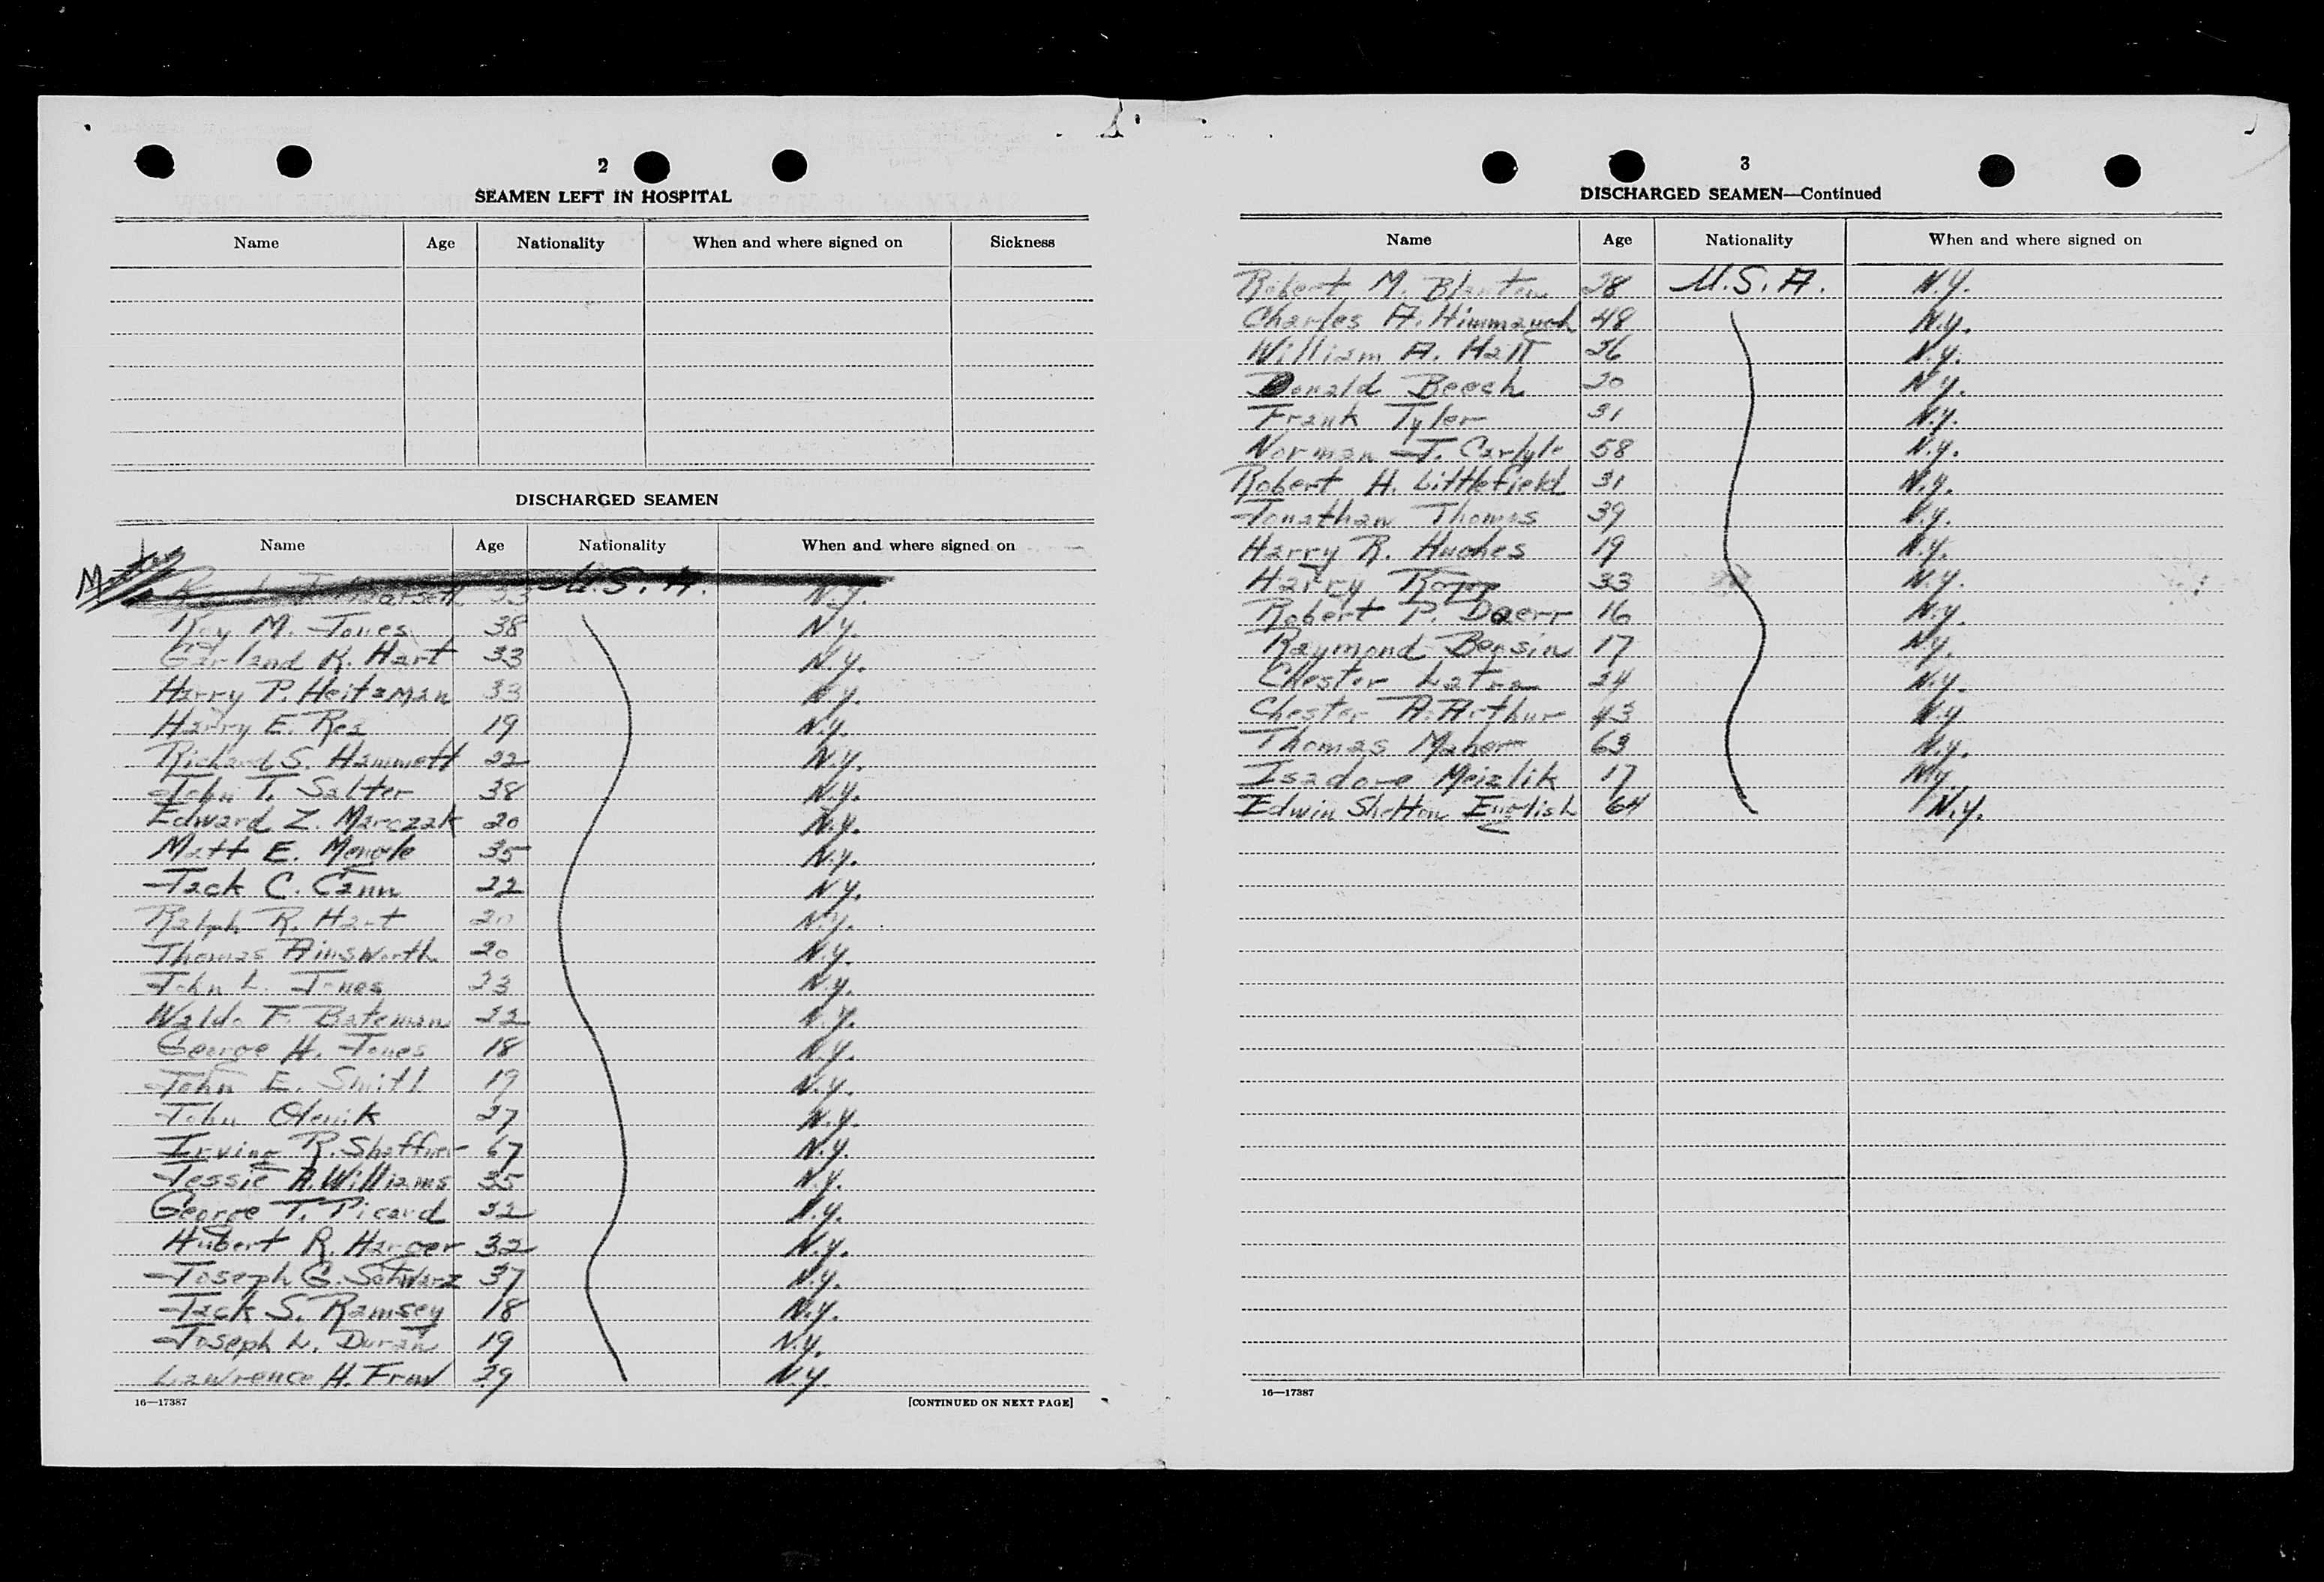 2
SEAMEN LEFT IN HOSPITAL
Name Age Nationality When and where signed on Sickness
DISCHARGED SEAMEN
Name Age Nationality When and where signed on
33 U.S.A. N.Y.
Roy M. Jones 38 N.Y.
Garland K. Hart 33 N.Y.
Harry P. Heitzman 33 N.Y.
Harry E. Rea 19 N.Y.
Richard S. Hammett 22 N.Y.
John T. Salter 38 N.Y.
Edward Z. Marczak 20 N.Y.
Matt E. Mengle 35 N.Y.
Jack C. Cann 22 N.Y.
Ralph R. Hart 20 N.Y.
Thomas Ainsworth 20 N.Y.
John L. Jones 23 N.Y.
Waldo F. Bateman 22 N.Y.
George H. Jones 18 N.Y.
John E. Smith 19 N.Y.
John Olenik 27 N.Y.
Irving R. Shaffner 67 N.Y.
Jessie A. Williams 35 N.Y.
George T. Picard 22 N.Y.
Hubert R. Harger 32 N.Y.
Joseph G. Schwarz 37 N.Y.
Jack S. Ramsey 18 N.Y.
Joseph L. Duran 19 N.Y.
Lawrence H. 29 N.Y.
16—17387 [CONTINUED ON NEXT PAGE]
3
DISCHARGED SEAMEN—Continued
Name Age Nationality When and where signed on
Robert M. Blanton 28 U.S.A. N.Y.
Charles A. 48 N.Y.
William A. Hall 26 N.Y.
Donald Beech 20 N.Y.
Frank Tyler 31 N.Y.
Norman J. Carlyle 58 N.Y.
Robert H. Littlefield 31 N.Y.
Jonathan Thomas 39 N.Y.
Harry R. Hughes 19 N.Y.
Harry 33 N.Y.
Robert P. Doerr 16 N.Y.
Raymond Bensin 17 N.Y.
Chester 24 N.Y.
Chester A. Arthur 43 N.Y.
Thomas Maher 63 N.Y.
Isadore Meizlik 17 N.Y.
Edwin Shelton English 64 N.Y.
16—17387